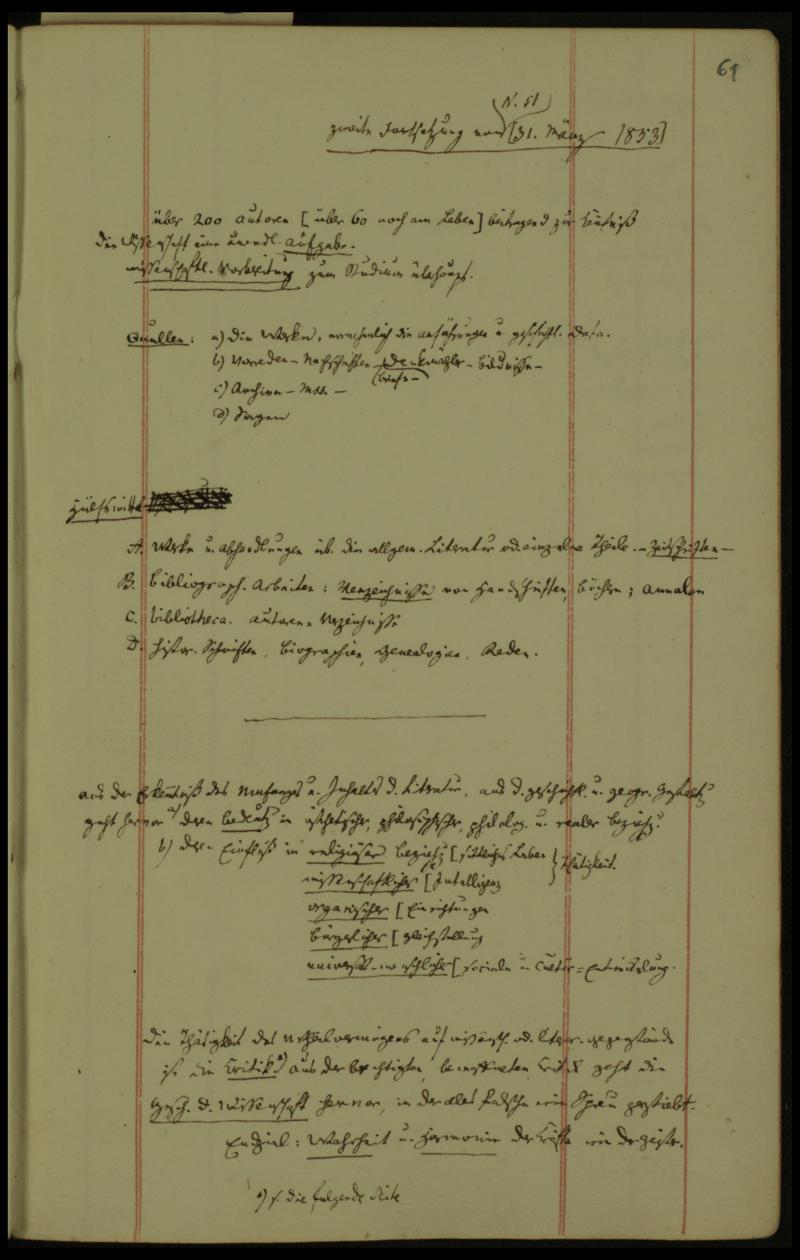 61
N. 51
zweite Fortsetzung von [31. März 1853]
über 200 Autoren [über 60 noch am Leben] beitragend zur Kentniß
die Wissenschaft eine unendl. Aufgabe.
wissenschaftl. Vorbereitung zum Studium überhaupt.
Quellen: a) Die Werke, namentlich die Anführungen u. geschichtl. Data.
b) Vorreden – Nachschriften – Denkmähler – Bildnisse –
(Briefe –
c) Archive – Mss. –
d) Sagen
Hülfsmittel
A. Werke u. Abhandlungen üb. die allgem. Literatur od. einzelne Theile. – Zeitschriften –
B. Bibliograph. Arbeiten: Verzeichnisse von Handschriften, Büchern; Annalen
C. Bibliotheca. Autoren-Verzeichnisse
D. histor. Schriften, Biographien, Genealogien, Reden.
aus der Erkentniß des Umfangs u. Inhalts d. Literatur, aus d. geschichtl. u. geogr. Gestaltg
geht hervor a) deren Bedeutg in ästhetischer, philosophischer, philolog. u. realer Beziehg.
b) deren Einfluß in religiöser Beziehg [sittliches Leben } Thätigkeit.
wissenschaftlicher [Intelligenz
organischer [Einrichtungen
bürgerlicher [Gleichstellung
universell-menschlicher [sociale u. Cultur=Entwickelung.
Die Thätigkeit des Urtheilvermögens auf wissensch. od. liter. Gegenstände
ist die Kritik*) aus der berichtigten, Kritik geht die
Gesch. d. Wissenschaft hervor, in der alles Falsche wie Spreu zerstiebt.
Endziel: Wahrheit u. Harmonie der Kräfte wie der Geister.
*) s. die folgende Seite